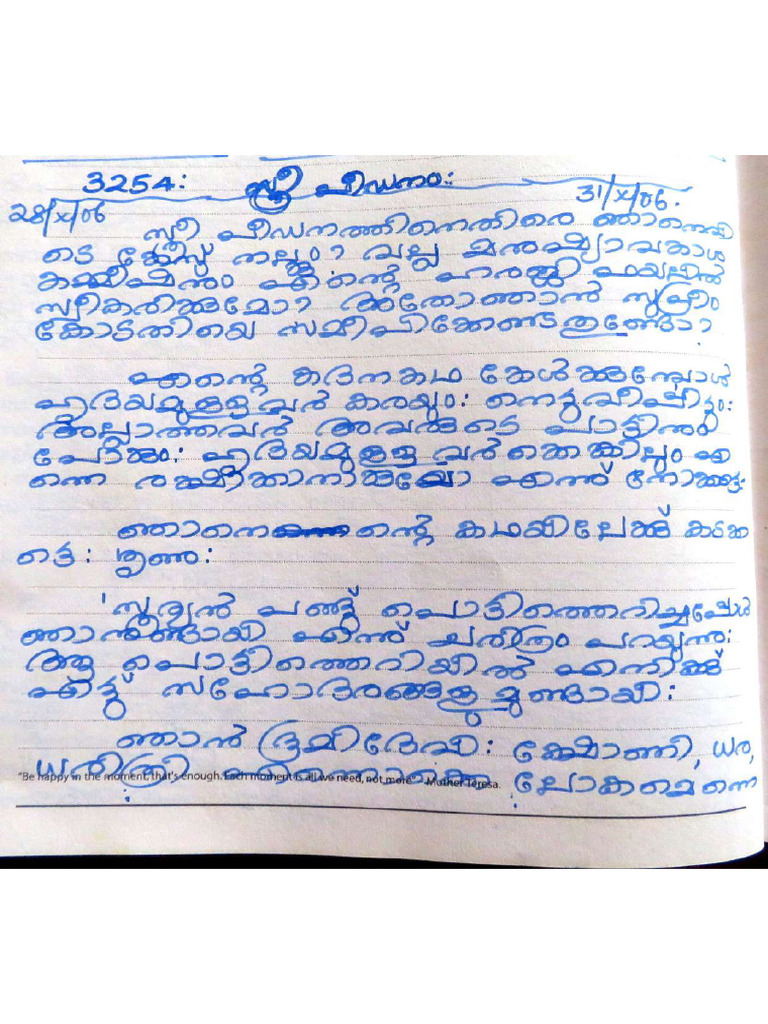 3254: സ്ത്രീ പീഡനം:
28/x/06 31/x/06.
സ്ത്രീ പീഡനത്തിനെതിരെ ഞാനെവി
ടെ കേസ്സ് നല്കും? വല്ല മനുഷ്യാവകാശ
കമ്മീഷനും എന്റെ ഹരജി ഫയലിൽ
സ്വീകരിക്കുമോ? അതോഞാൻ സുപ്രീം
കോടതിയെ സമീപിക്കേണ്ടതുണ്ടോ?
എന്റെ കദനകഥ കേൾക്കുമ്പോൾ
ഹൃദയമുള്ളവർ കരയും: നെടുവീർപ്പിടും:
അല്ലാത്തവർ അവരുടെ പാട്ടിനും
പോകും: ഹൃദയമുള്ളവർക്കെങ്കിലും എ
ന്നെ രക്ഷിക്കാനാകുമോ എന്ന് നോക്കട്ടെ:
ഞാനെന്റെ കഥയിലേക്ക് കടക്ക
ട്ടെ: ശൃണു:
'സൂര്യൻ പണ്ട് പൊട്ടിത്തെറിച്ചപ്പോൾ
ഞാനുണ്ടായി എന്ന് ചരിത്രം പറയുന്നു:
ആ പൊട്ടിത്തെറിയിൽ എനിക്ക്
എട്ടു സഹോദരങ്ങളുമുണ്ടായി:
ഞാൻ ഭൂമിദേവി: ക്ഷോണി, ധര,
ധരിത്രി എന്നൊക്കെ ലോകമെന്നെ
"Be happy in the moment, that's enough. Each moment is all we need, not more" - Mother Teresa.